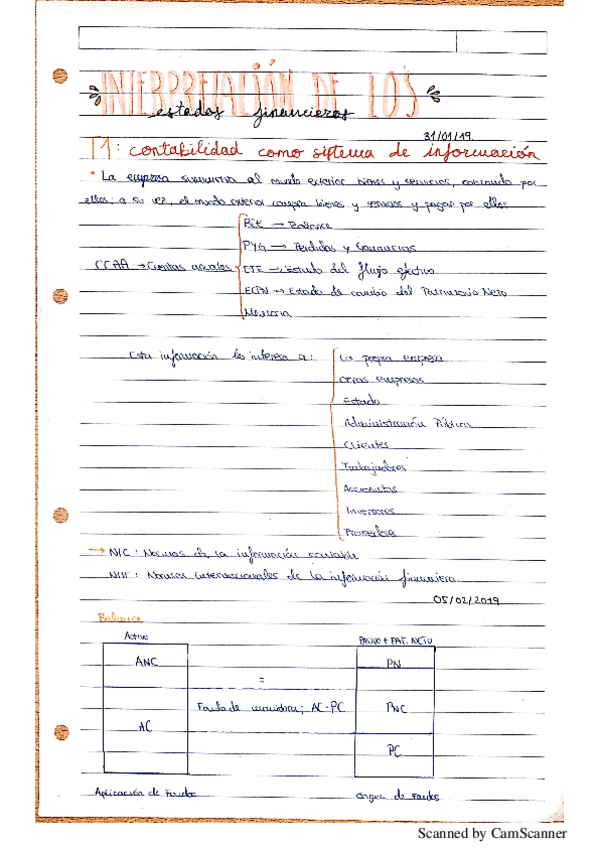 INTERPRETACIÓN DE LOS
estados financieros
31/01/19.
T1: contabilidad como sistema de información
• La empresa suministra al mundo exterior bienes y servicios, cobrando por
ellos; a su vez, el mundo exterior compra bienes y servicios y pagar por ellos
→ Balance
PYG → Perdidas y Ganancias
CCAA → Cuentas anuales
→ Estado del flujo efectivo
ECPN → Estado de cambio del Patrimonio Neto
Memoria
Esta información les interesa a:
La propia empresa
Otras empresas
Estado
Administración Pública
Clientes
Trabajadores
Accionistas
Inversores
→ NIC: Normas de la información contable
NIIF: Normas internacionales de la información financiera.
05/02/2019
Balance
Activo
PASIVO + PAT. NETO
ANC
PN
=
Fondo de maniobra; AC-PC
PNC
AC
PC
Aplicación de Fondos
Origen de Fondos
Scanned by CamScanner